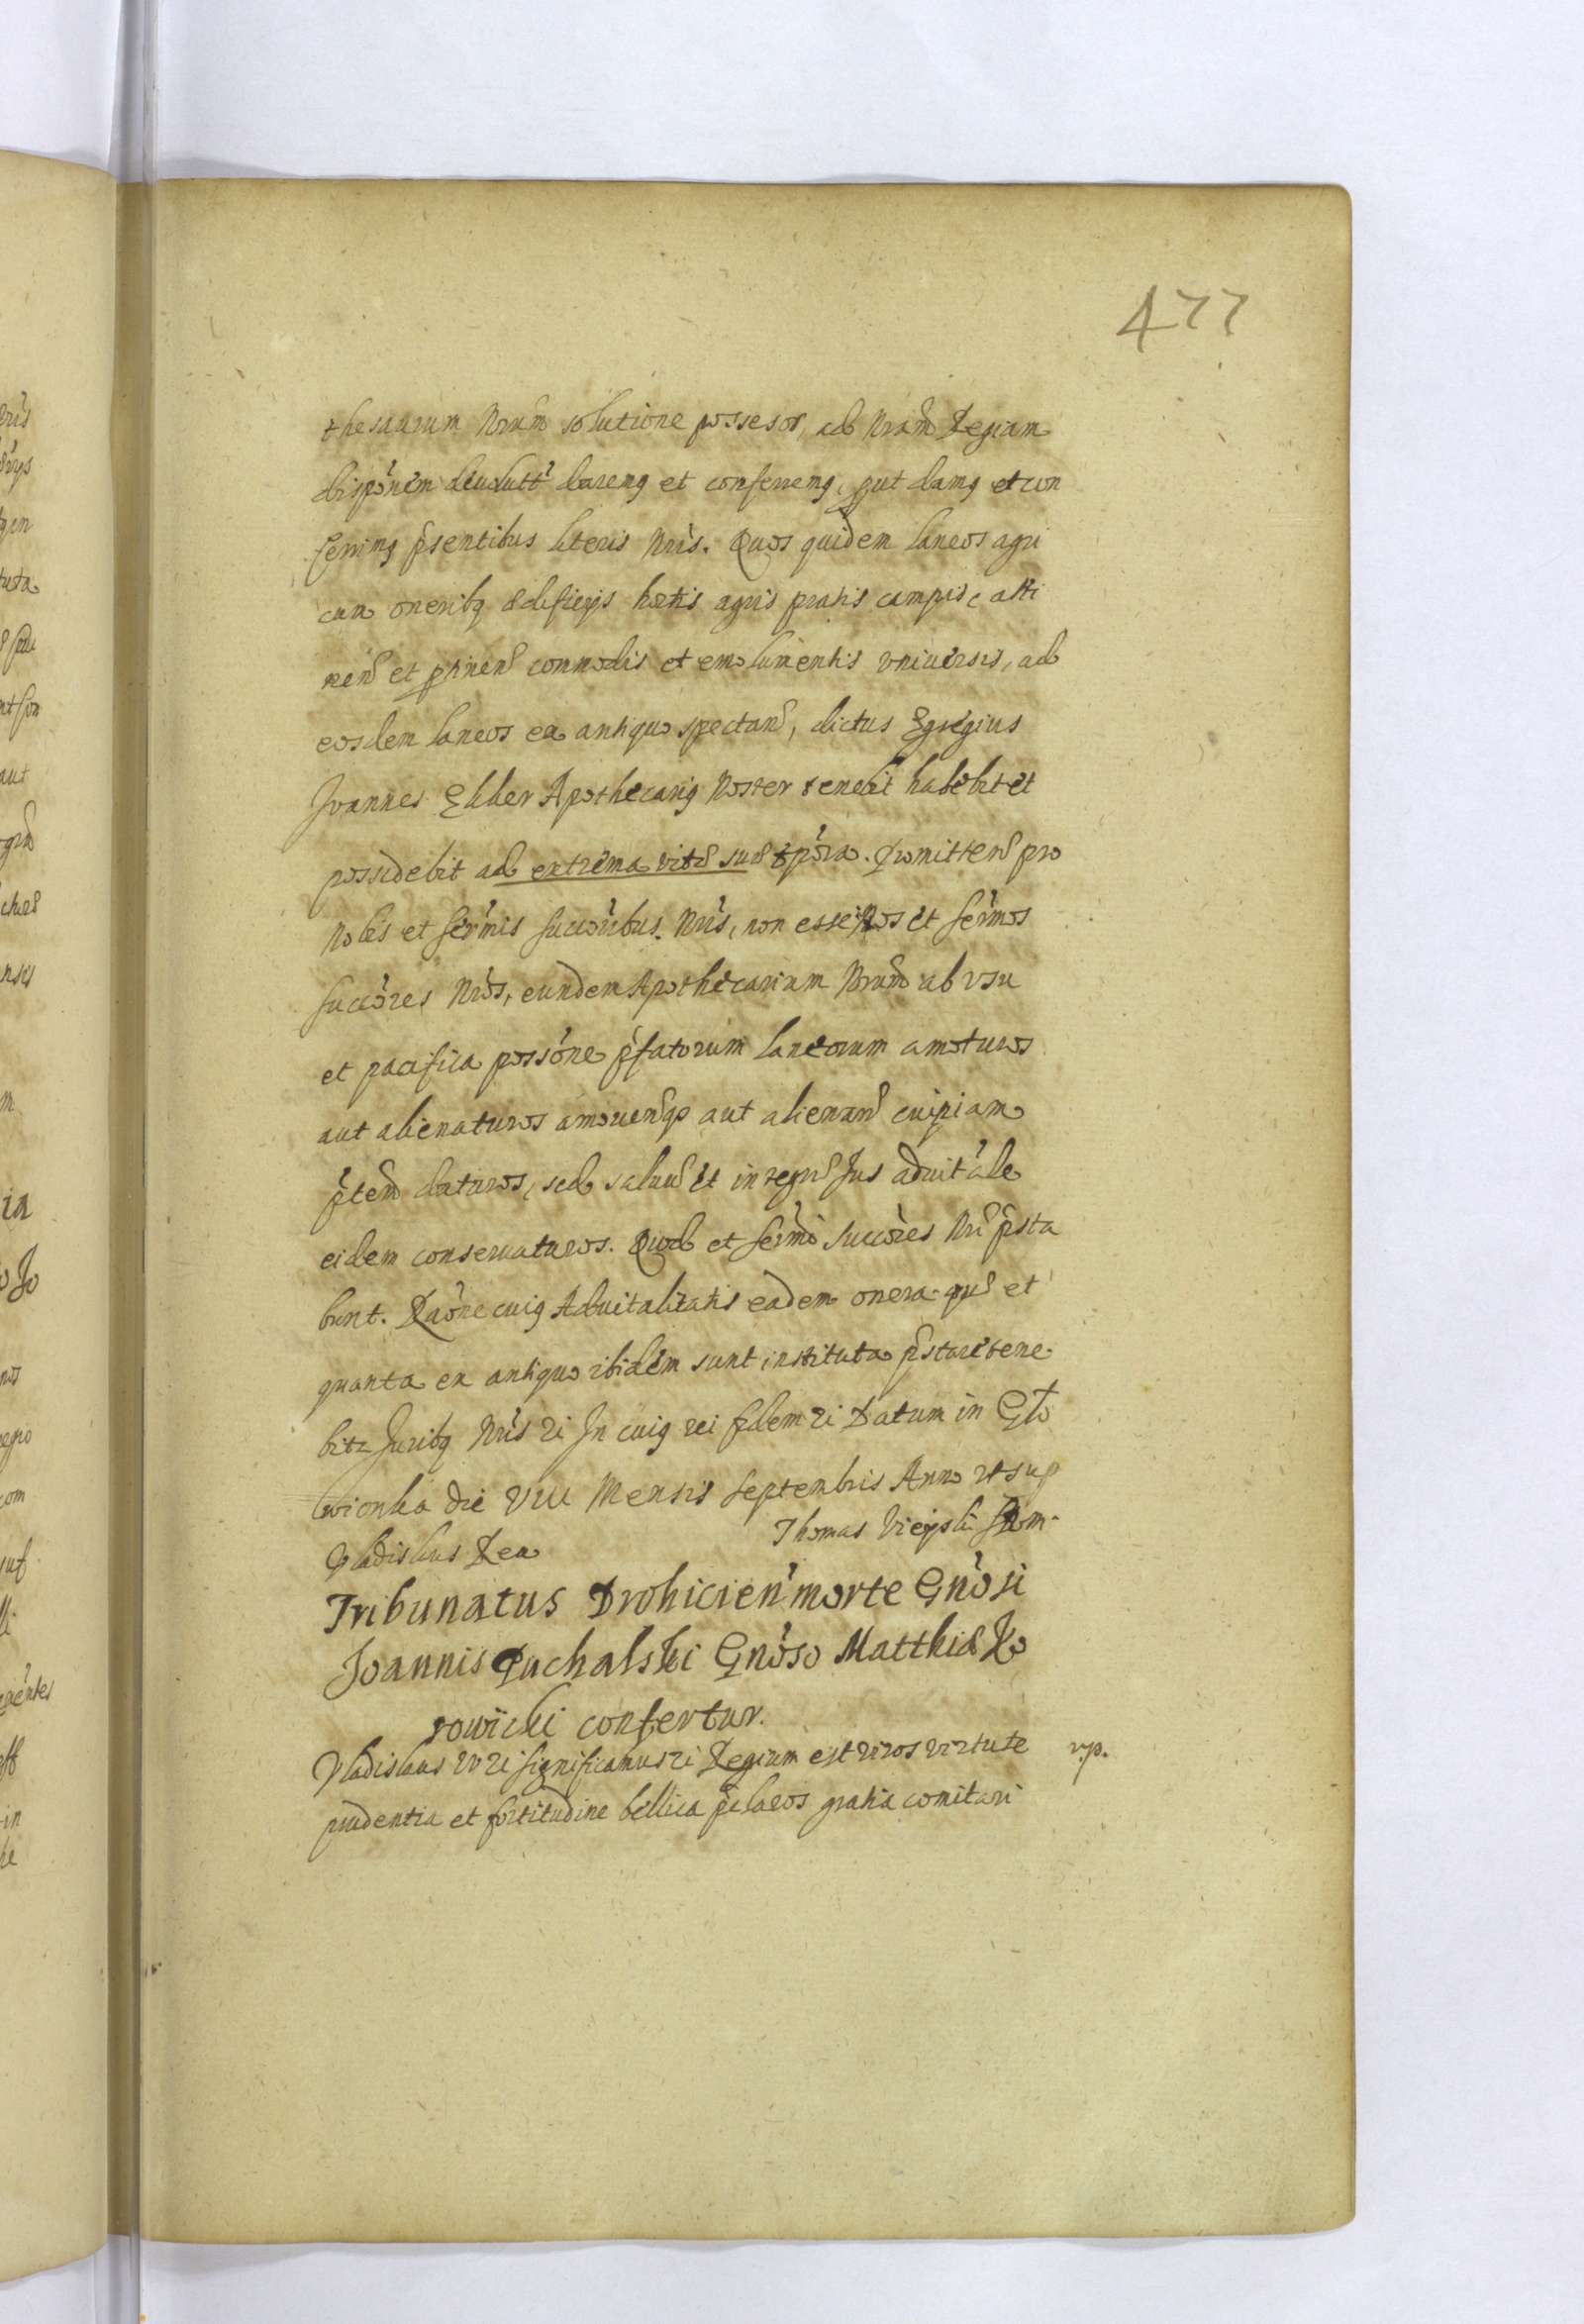 477
thesaurum Nrum solutione possesor, ad Nram Regiam
disponem deuolutt daremg et conferremg, put damg et con
ferimg psentibus literis Nris. Quos quidem laneos agri
cum oneribg ædificijs hortis agris pratis campis, atti
nen et ptinen commodis et emolumentis vniuersis, ad
eosdem laneos ex antiquo spectan, dictus Egregius
Joannes Apothecarig Noster tenebit habebit et
possidebit ad extrema vitæ suæ tpora. Promitten pro
nobis et sermis succoribus Nris, non esse Nos et sermos
succores Nros, eundem Apothecarium Nrum ab vsu
et pacifica possone pfatorum laneorum amoturos
aut alienaturos amouendiqз aut alienan cuipiam
ptem daturos, sed saluu et integru Jus aduitale
eidem conseruaturos. Quod et sermi succores Nri psta
bunt. Raone cuig Aduitalitatis eadem onera quæ et
quanta ex antiquo ibidem sunt instituta pstare tene
bitz Juribg Nris zi In cuig rei fidem zi Datum in Glo
wionka die VIII Mensis septembris Anno vt sup
Vladislaus Rex Thomas Vieyski
Tribunatus Drohicien morte Gnosi
Joannis Puchalski Gnoso Matthiæ Ko
rowicki confertur.
Vladislaus IV zi significamus zi Regium est viros virtute
v.p.
prudentia et fortitudine bellica pclaros gratia comitari